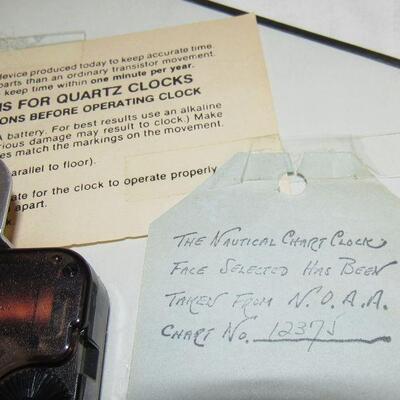 device produced today to keep accurate time.
parts than an ordinary transistor movement.
keep time within one minute per year.
NS FOR QUARTZ CLOCKS
IONS BEFORE OPERATING CLOCK
A battery. For best results use an alkaline
rious damage may result to clock.) Make
es match the markings on the movement.
parallel to floor).
ate for the clock to operate properly
apart.
THE NAUTICAL CHART CLOCK
FACE SELECTED HAS BEEN
TAKEN FROM N.O.A.A.
CHART NO. 12375